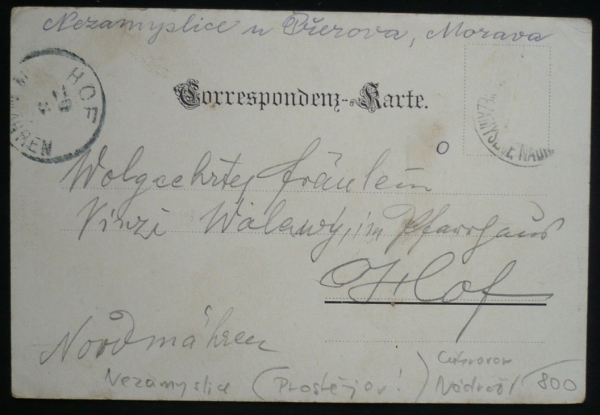 Nezamyslice u Přerova, Morava
HOF
MÄHREN
Correspondenz-Karte.
Wolgeehrtes Fräulein
Vinzi im Pfarrhaus
Hof
Nordmähren
Nezamyslice (Prostějov!)
800